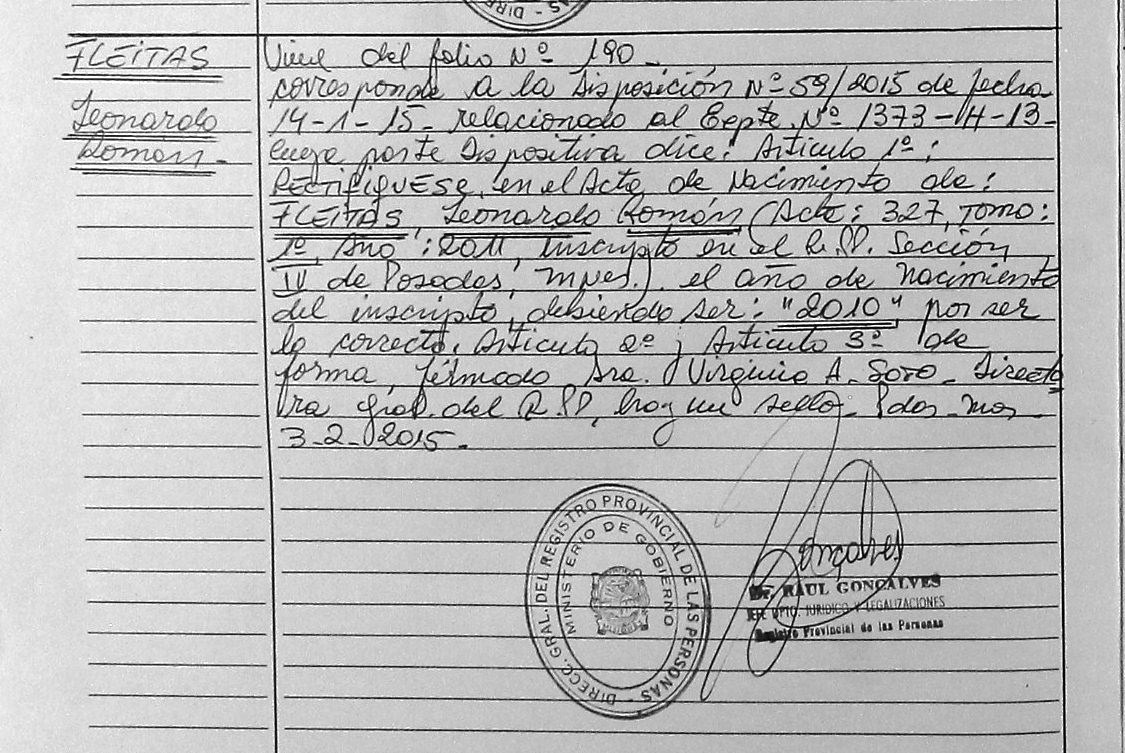 - DIREC
FLEITAS
Leonardo
Roman.-
Viene del folio Nº 190.-
corresponde a la Disposición Nº 59/2015 de fecha
14-1-15- relacionado al Expte. Nº 1373-H-13-
cuya parte Dispositiva dice: Articulo 1º:
RECTIFIQUESE, en el Acta de Nacimiento de:
FLEITAS, Leonardo Román, (Acta: 327, Tomo:
1º, Año: 2011, inscripto en el R.P.P. Sección
IV de Posadas, Mnes.). el año de Nacimiento
del inscripto, debiendo ser: "2010" por ser
lo correcto. Articulo 2º; Articulo 3º de
forma, firmado Sra. Virginia A. Soto - Directo
ra Gral. del R.P.P, hay un sello- Pdas. Mnes.
3-2-2015-
DIRECC. GRAL. DEL REGISTRO PROVINCIAL DE LAS PERSONAS -
MINISTERIO DE GOBIERNO
Gonçalves
Dr. RAUL GONCALVES
JEFE DPTO. JURIDICO Y LEGALIZACIONES
Registro Provincial de las Personas